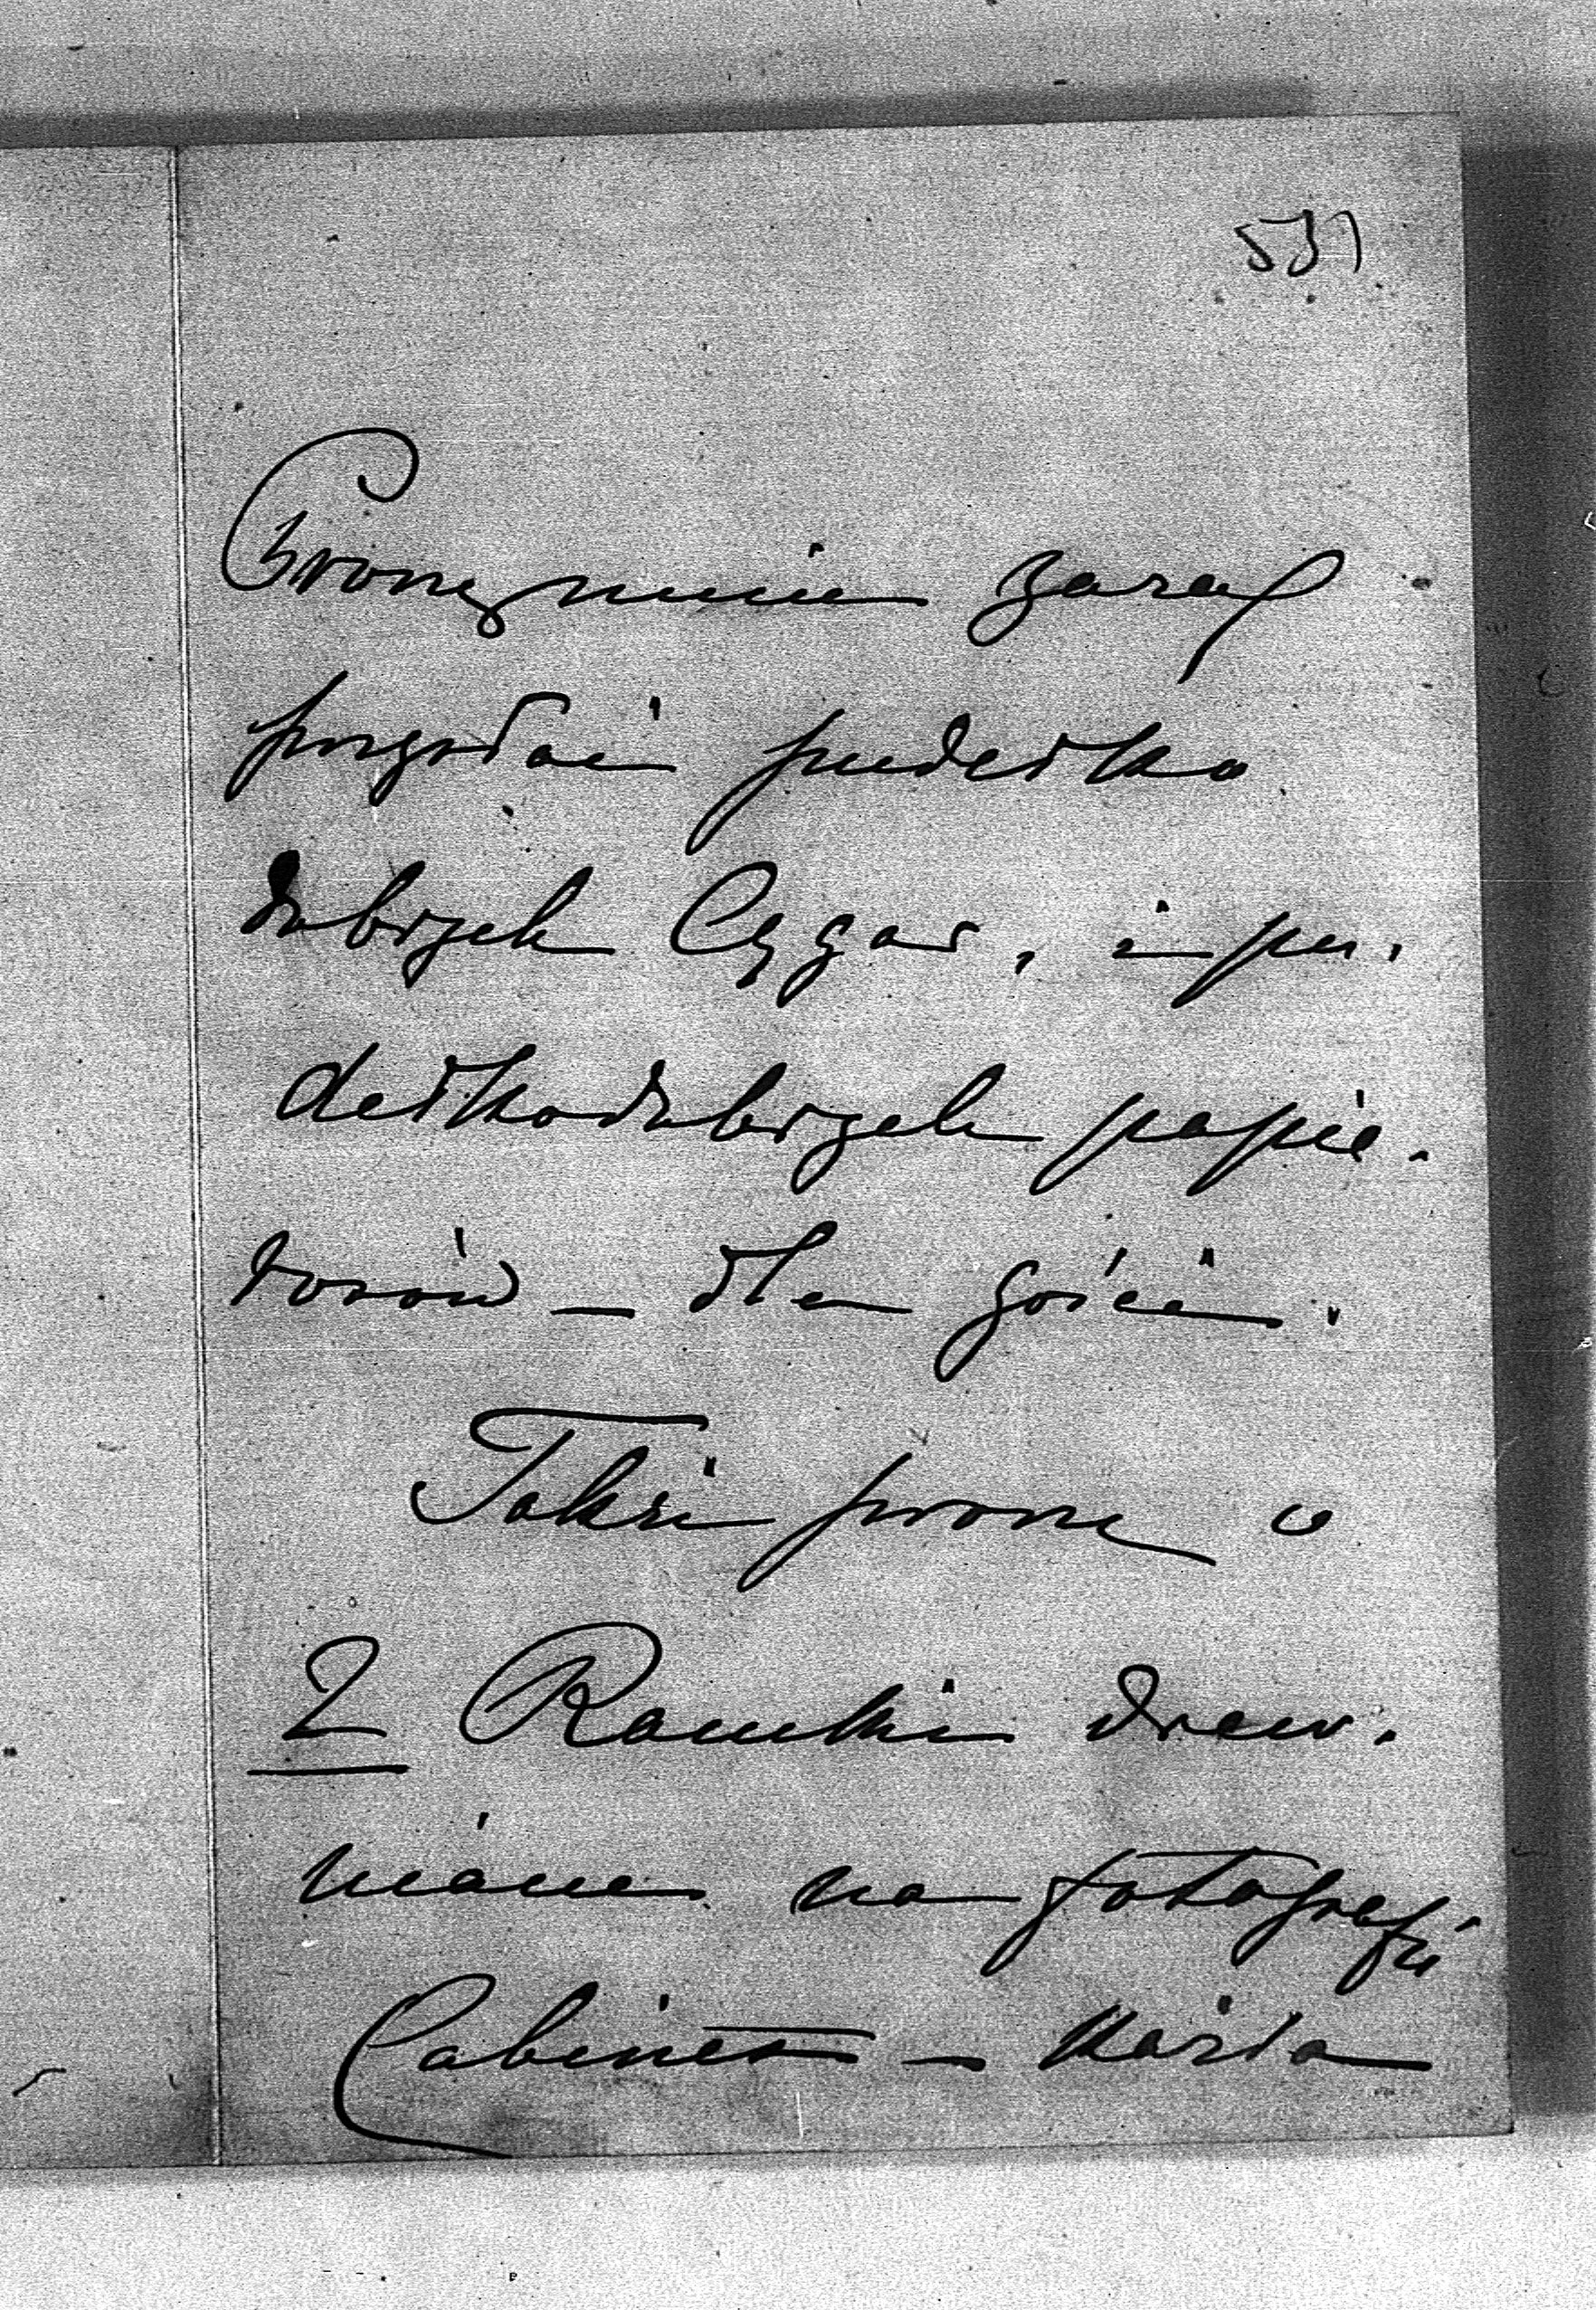 531
Proszę mnie zaraz
przysłać pudełko
dobrych Cygar, i pu-
dełko dobrych papie-
rosów — dla gości.
Także proszę o
2 Ramki drew-
niane na fotografii
Cabinet — Karta